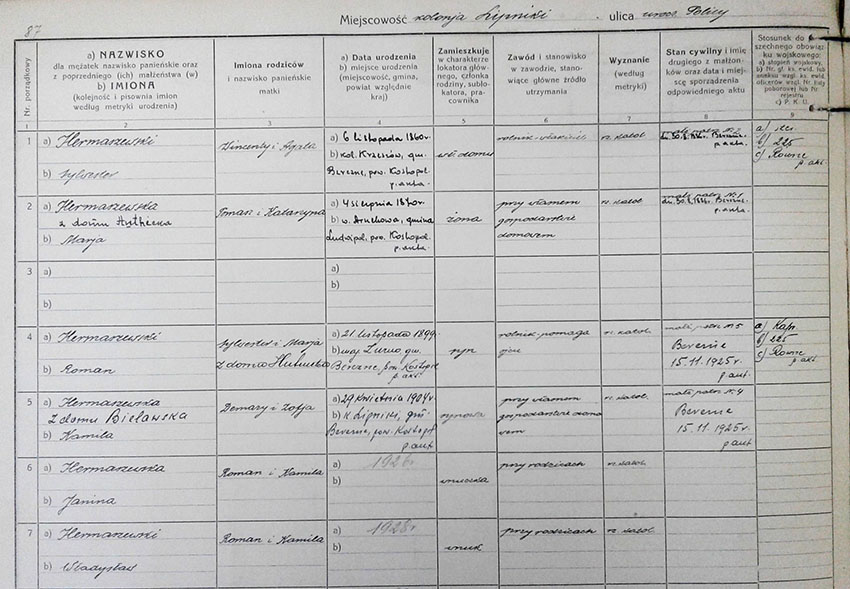 87
Miejscowość kolonja Lipniki ulica Policy
Nr. porządkowy
a) NAZWISKO
dla mężatek nazwisko panieńskie oraz
z poprzedniego (ich) małżeństwa (w)
b) IMIONA
(kolejność i pisownia imion
według metryki urodzenia)
Imiona rodziców
i nazwisko panieńskie
matki
a) Data urodzenia
b) miejsce urodzenia
(miejscowość, gmina,
powiat względnie
kraj)
Zamieszkuje
w charakterze
lokatora głów-
nego, członka
rodziny, sublo-
katora, pra-
cownika
Zawód i stanowisko
w zawodzie, stano-
wiące główne źródło
utrzymania
Wyznanie
(według
metryki)
Stan cywilny i imię
drugiego z małżon-
ków oraz data i miej-
sce sporządzenia
odpowiedniego aktu
Stosunek do
szechnego obowiąz
ku wojskowego:
a) stopień wojskowy,
b) Nr. gł. ks. ewid. lub
c) P. K. U.
1 2 3 4 5 6 7 8 9
1 a) Hermaszewski
b) Sylwester
Wincenty i Agata
a) 6 listopada 1860r.
b) kol. Krzesów, gm.
Berezne, pow. Kostopol
p. antu.
rolnik
rz. katol.
a)
b) 225
c) Rowne
p. akt
2 a) Hermaszewska
z domu
b) Marja
Tomasz i Katarzyna
a) 4 sierpnia 1870r.
b) w. gmina
Ludwipol, pow. Kostopol
p. antu.
żona
przy własnem
gospodarstwie
domowem
rz. katol.
3 a)
b)
a)
b)
4 a) Hermaszewski
b) Roman
Sylwester i Marja
z domu
a) 21 listopada 1899.
b) gm.
Berezne, pow. Kostopol
p. akt.
syn
rolnik-pomaga
ojcu
rz. katol.
Berezne
15.11.1925r.
p. aut
a) Kap.
b) 225
c) Rowne
p. akt
5 a) Hermaszewska
z domu Bielawska
b) Kamila
i Zofja
a) 29 kwietnia 1904r.
b) k. Lipniki, gm.
Berezne, pow. Kostopol
p. aut
synowa
przy własnem
gospodarstwie domo
wem
rz. katol.
Berezne
15.11.1925r.
p. aut
6 a) Hermaszewska
b) Janina
Roman i Kamila
a) 1926r.
b)
wnuczka
przy rodzicach
rz. katol.
7 a) Hermaszewski
b) Władysław
Roman i Kamila
a) 1928r.
b)
wnuk
przy rodzicach
rz. katol.